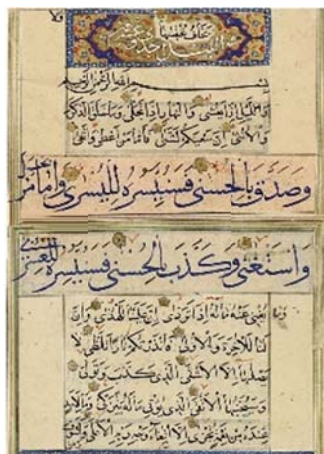 بِسْمِ اللهِ الرَّحْمٰنِ الرَّحِيمِ
وَاللَّيْلِ اِذَا يَغْشٰى وَالنَّهَارِ اِذَا تَجَلّٰى وَمَا خَلَقَ الذَّكَرَ
وَالْاُنْثٰى اِنَّ سَعْيَكُمْ لَشَتّٰى فَاَمَّا مَنْ اَعْطٰى وَاتَّقٰى
وَصَدَّقَ بِالْحُسْنٰى فَسَنُيَسِّرُهُ لِلْيُسْرٰى وَاَمَّا مَنْ بَخِلَ
وَاسْتَغْنٰى وَكَذَّبَ بِالْحُسْنٰى فَسَنُيَسِّرُهُ لِلْعُسْرٰى
وَمَا يُغْنِى عَنْهُ مَالُهُ اِذَا تَرَدّٰى اِنَّ عَلَيْنَا لَلْهُدٰى وَاِنَّ
لَنَا لَلْاٰخِرَةَ وَالْاُولٰى فَاَنْذَرْتُكُمْ نَارًا تَلَظّٰى لَا
يَصْلٰيهَا اِلَّا الْاَشْقَى الَّذِى كَذَّبَ وَتَوَلّٰى
وَسَيُجَنَّبُهَا الْاَتْقَى الَّذِى يُؤْتِى مَالَهُ يَتَزَكّٰى وَمَا لِاَحَدٍ
عِنْدَهُ مِنْ نِعْمَةٍ تُجْزٰى اِلَّا ابْتِغَاءَ وَجْهِ رَبِّهِ الْاَعْلٰى وَلَسَوْفَ